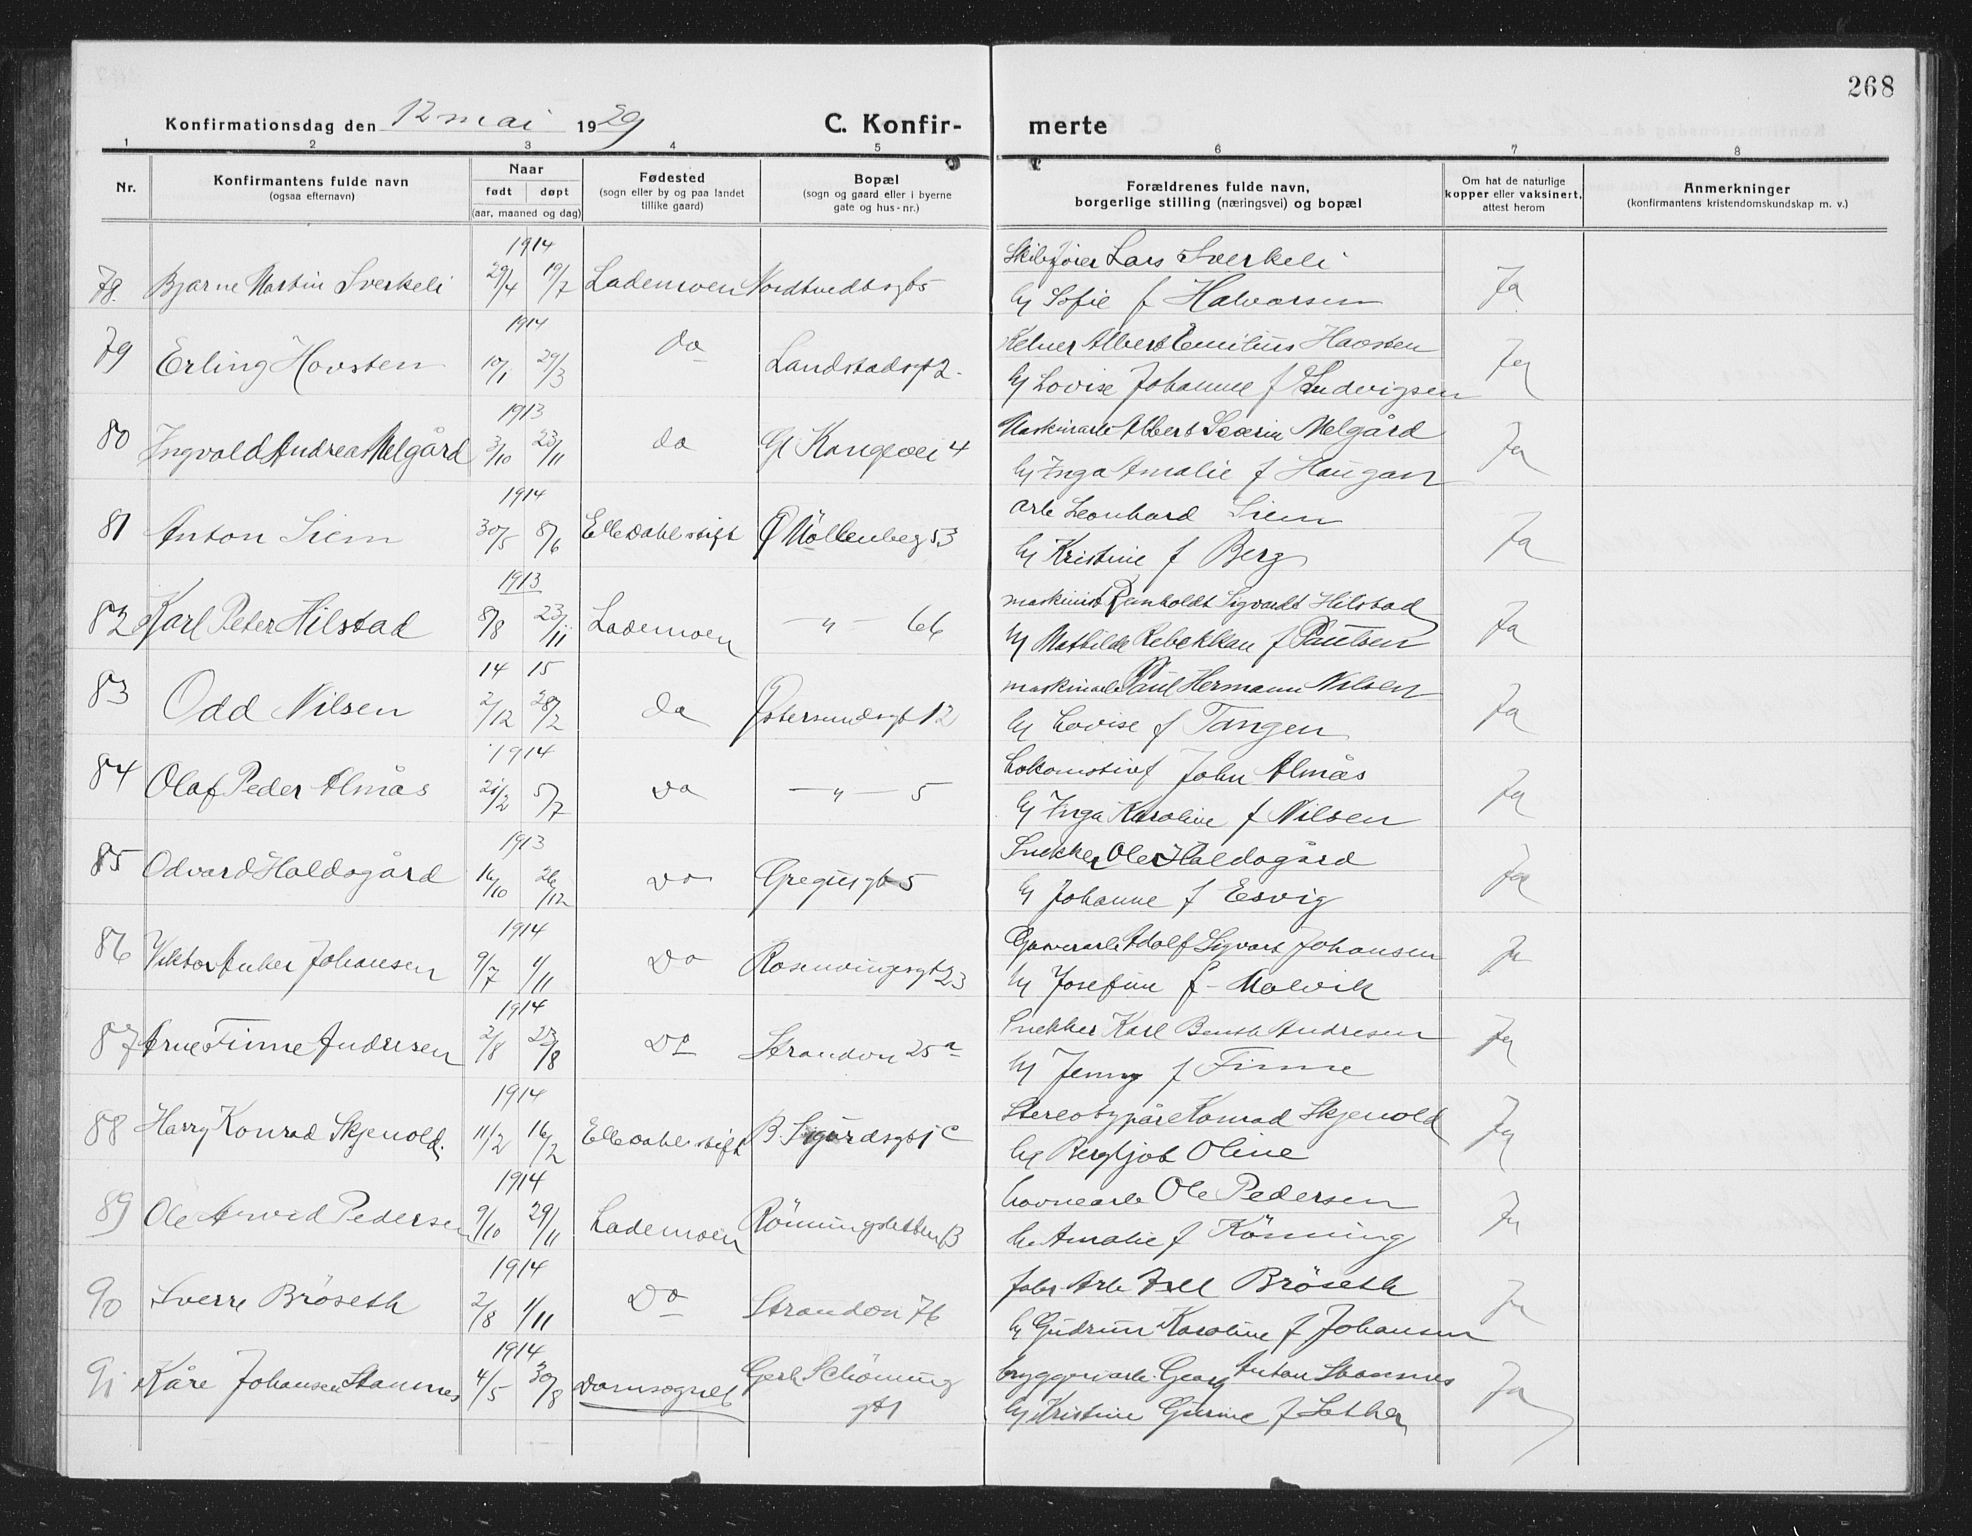 268
Konfirmationsdag den 12 mai 1929
C. Konfir- merte
1 2 3 4 5 6 7 8
Nr.
Konfirmantens fulde navn
(ogsaa efternavn)
Naar
født døpt
(aar, maaned og dag)
Fødested
(sogn eller by og paa landet
tillike gaard)
Bopæl
(sogn og gaard eller i byerne
gate og hus-nr.)
Forældrenes fulde navn,
borgerlige stilling (næringsvei) og bopæl
Om hat de naturlige
kopper eller vaksinert,
attest herom
Anmerkninger
(konfirmantens kristendomskundskap m. v.)
1914
Skibsfører Lars Sverkeli
78. Bjarne Martin Sverkeli 29/4 19/7 Lademoen Nordtvedtsgt 5 Ja
Hj Sofie f Halvorsen
1914
79 Erling Hovsten 10/1 29/3 do Landstadsgt 2. Ja
Kelner Albert Emilius Hovsten
Hj Lovise Johanne f Ludvigsen
1913
80 Ingvald Andreas Melgård 3/10 23/11 do Gl Kongevei 4 Ja
Maskinarb Albert Severin Melgård
Hj Inga Amalie f Haugan
1914
81 Anton Siem 30/5 8/6 E C Dahls stift Ø Möllenberg 53 Ja
Arb Leonhard Siem
Hj Kristine f Berg
1913
82 Karl Peter Hilstad 8/8 23/11 Lademoen — " — 66 Ja
maskinist Reinholdt Sigvardt Hilstad
Hj Mathilde Rebekka f Paulsen
14 15
83 Odd Nilsen 2/12 28/2 do Østersundsgt 12 Ja
maskinarb Paul Hermann Nilsen
Hj Lovise f Tangen
1914
84 Olaf Peder Almås 21/2 5/7 Do — " — 5 Ja
Lokomotivf John Almås
Hj Inga Karoline f Nilsen
1913
85 Odvard Haldogård 16/10 26/12 Do Gregusgt 5 Ja
Snekker Ole Haldogård
Hj Johanne f Esvig
1914
86 Viktor Anker Johansen 9/7 1/11 Do Rosenvingesgt 23 Ja
Garverarb Adolf Sigvart Johansen
Hj Josefine f Malvik
1914
87 Arne Finne Andresen 2/8 23/8 Do Strandvn 25 a Ja
Snekker Karl Bernth Andresen
Hj Jenny f Finne
1914
88 Harry Konrad Skjevold. 11/2 16/2 E C Dahls stift B. Sigurdsgt 1 c Ja
Stereotypør Konrad Skjevold
Hj Bergljot Oline
1914
89 Ole Arvid Pedersen 9/10 29/11 Lademoen Rönningsletten 13 Ja
havnearb Ole Pedersen
H. Amalie f Rönning
1914
90 Sverre Bröseth 2/8 1/11 Do Strandvn 76 Ja
fabr Arb Bröseth
Hj Gudrun Karoline f Johansen
1914
91 Kåre Johansen Stamnes 4/5 30/8 Domsognet Gerh Schöning Ja
gt 1
bryggeriarb. Georg Anton Stamnes
Hj Kristine Gurine f Sether